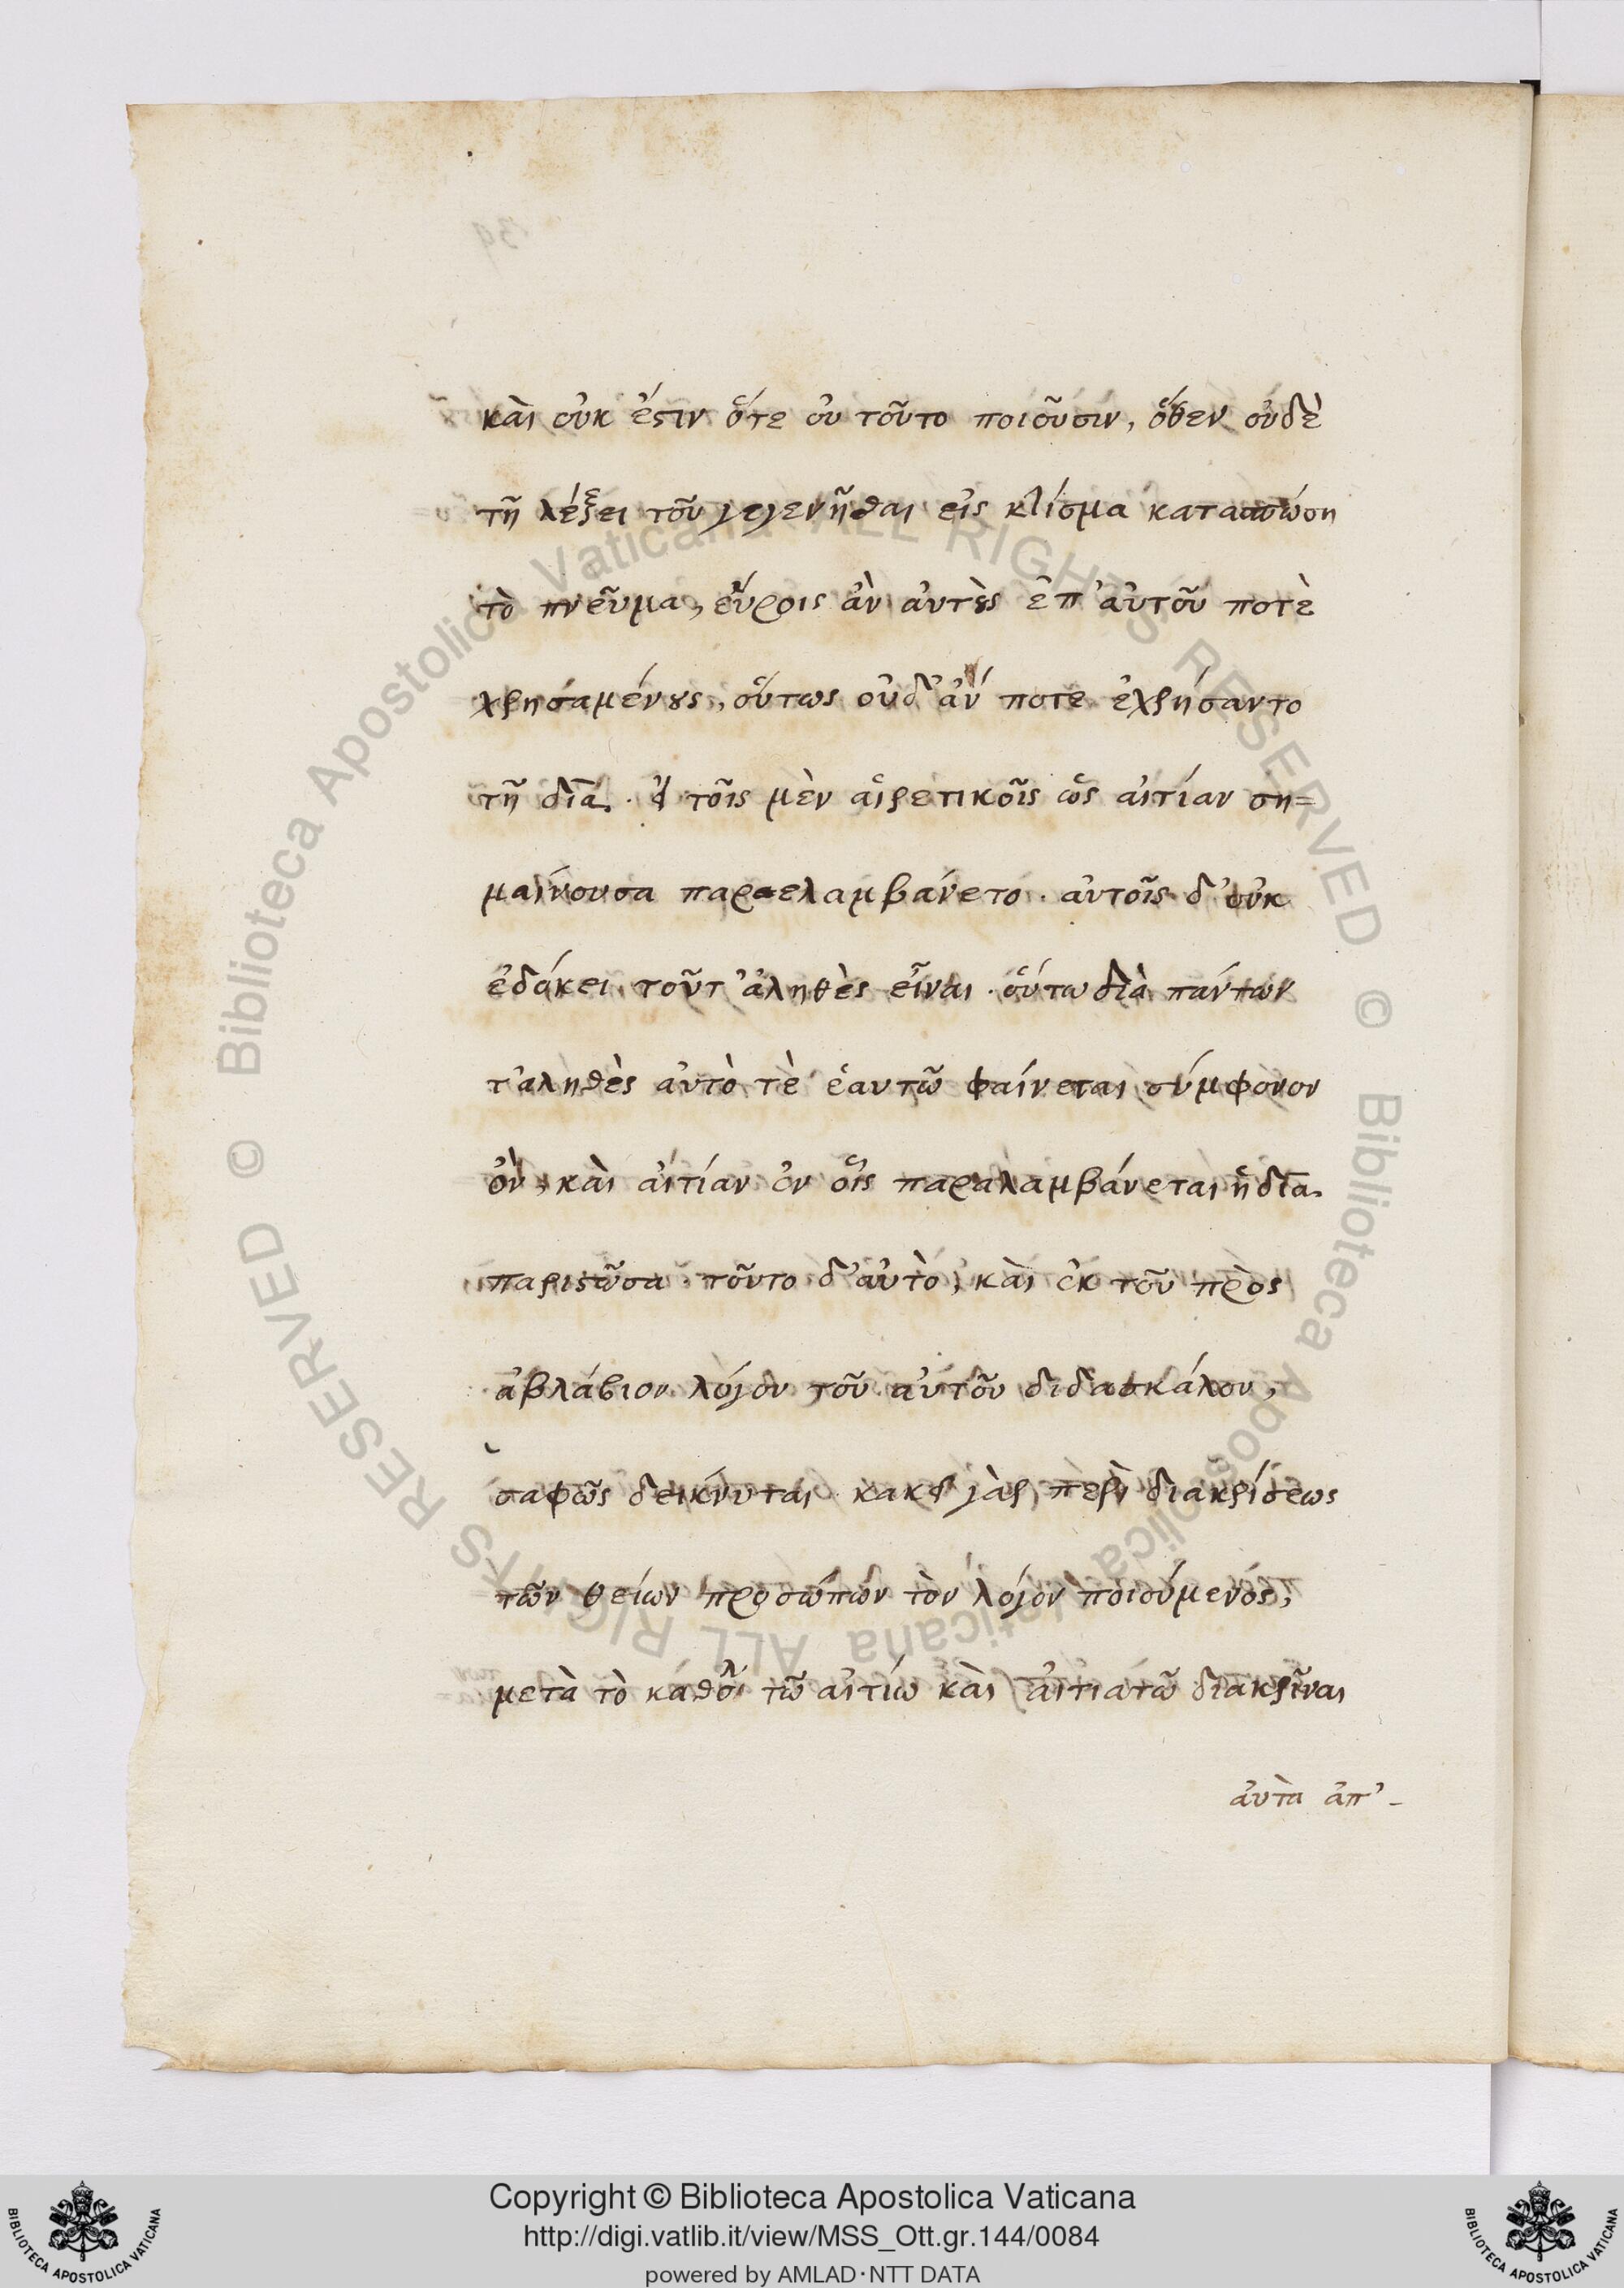 καὶ οὐκ ἔστιν ὅτε οὐ τοῦτο ποιοῦσιν, ὅθεν οὐδὲ
τῆ λέξει τοῦ γεγενῆσθαι εἰς κτίσμα κατασπώση
τὸ πνεῦμα, εὕροις ἂν αὐτοὺς ἐπ' αὐτοῦ ποτὲ
χρησαμένους, οὕτως οὐδ' ἄν ποτε ἐχρήσαντο
τῆ διὰ. εἰ τοῖς μὲν αἱρετικοῖς ὡς αἰτίαν ση=
μαίνουσα παρελαμβάνετο. αὐτοῖς δ' οὐκ
ἐδόκει τοῦτ' ἀληθὲς εἶναι. οὕτω διὰ πάντων
τ' αληθὲς αὐτὸ τὲ ἑαυτῶ φαίνεται σύμφονον
ὂν, καὶ αἰτίαν ἐν οἷς παραλαμβάνεται ἡ δια.
παριστῶσα. τοῦτο δ' αὐτὸ, καὶ ἐκ τοῦ πρὸς
ἀβλάβιον λόγου τοῦ αὐτοῦ διδασκάλου,
σαφῶς δείκνυται. κακεῖ γὰρ περὶ διακρίσεως
τῶν θείων προσώπων τὸν λόγον ποιούμενός,
μετὰ τὸ καθόλου τῶ αἰτίω καὶ αἰτιατῶ διακρῖναι
αὐτὰ ἀπ' -
Copyright © Biblioteca Apostolica Vaticana
http://digi.vatlib.it/view/MSS_Ott.gr.144/0084
powered by AMLAD·NTT DATA
© Biblioteca Apostolica Vaticana ALL RIGHTS RESERVED © Biblioteca Apostolica Vaticana ALL RIGHTS RESERVED
BIBLIOTECA APOSTOLICA VATICANA
BIBLIOTECA APOSTOLICA VATICANA